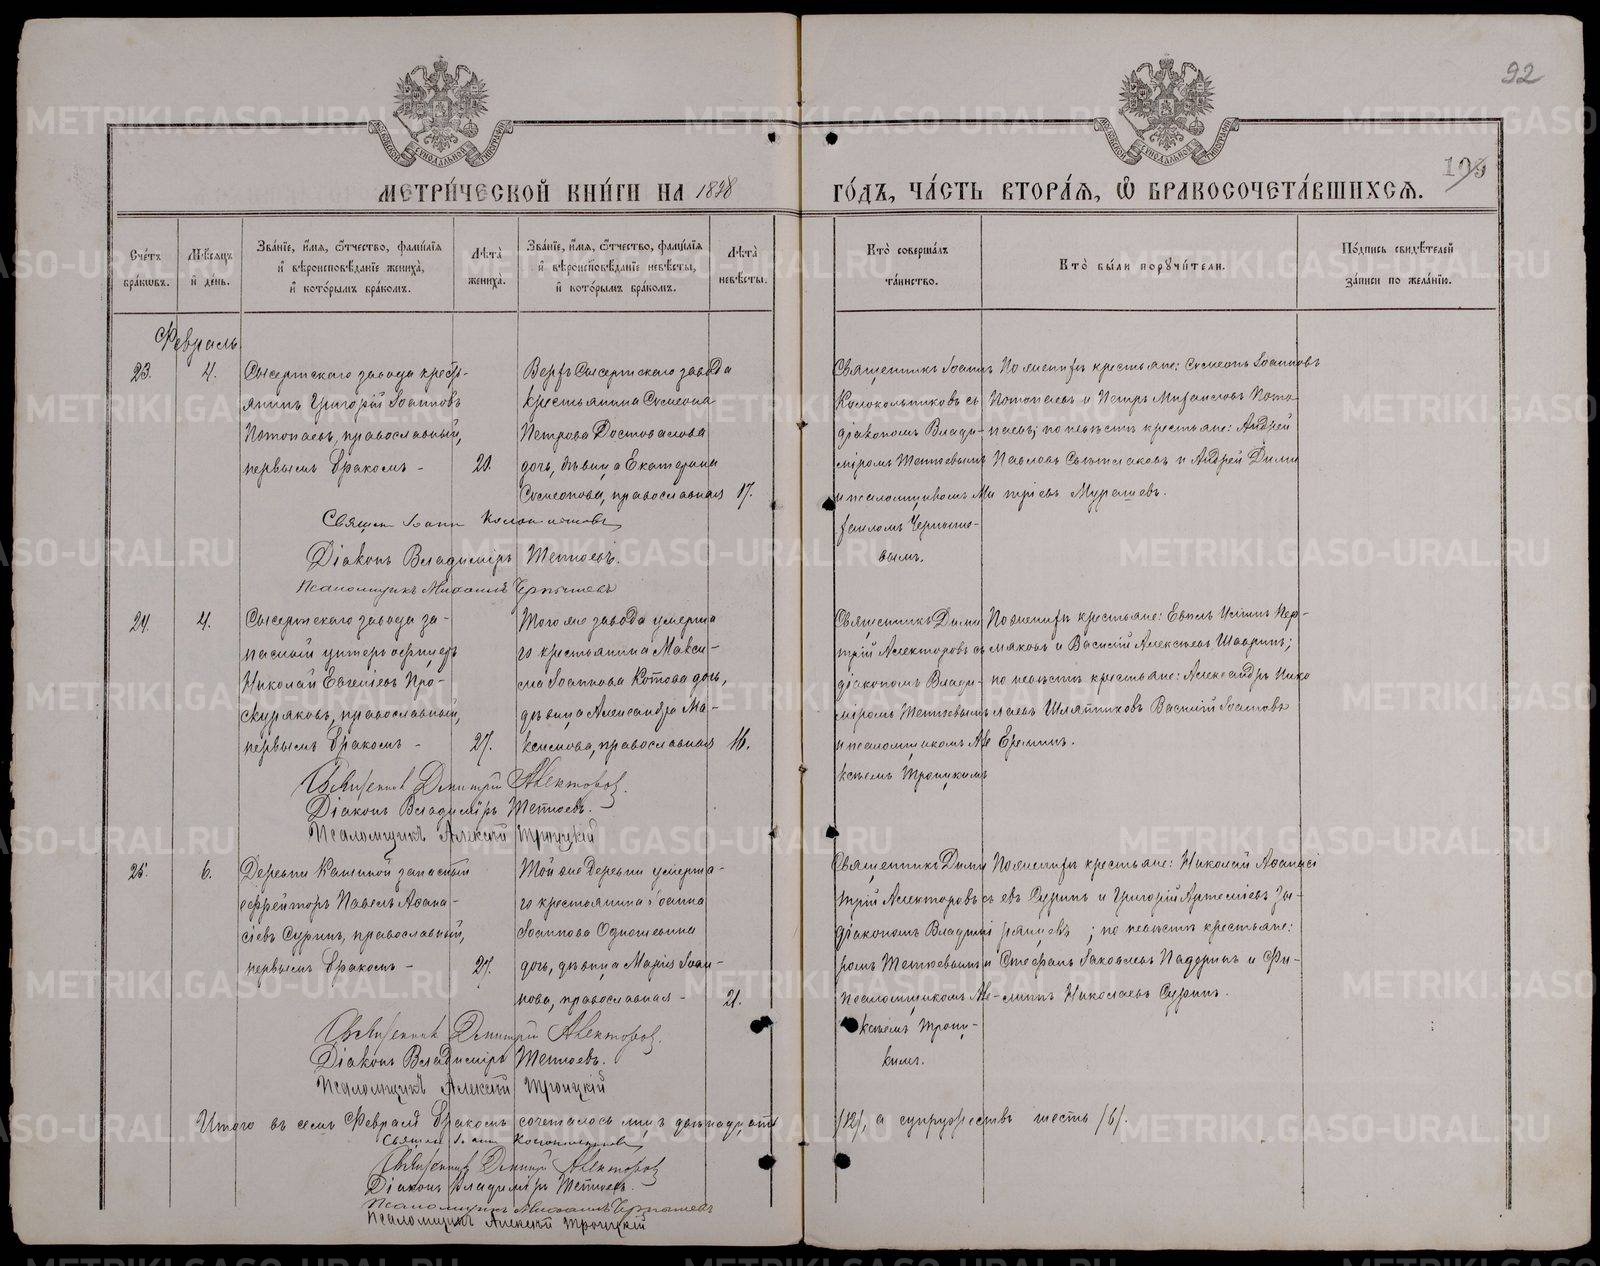 92
109
МЕТРИ́ЧЕСКОЙ КНИ́ГИ НА 1898
ГО́ДЪ, ЧА́СТЬ ВТОРА́Я, Ѽ БРАКОСОЧЕТА́ВШИХСЯ.
Сче́тъ бра́ковъ.
Мѣ́сяцъ и҆ де́нь.
Зва́нїе, и҆́мя, ѻ҆́тчество, фами́лїя и҆ вѣроисповѣ́данїе жениха̀, и҆ кото́рымъ бра́комъ.
Лѣ́та жениха̀.
Зва́нїе, и҆́мя, ѻ҆́тчество, фами́лїя и҆ вѣроисповѣ́данїе невѣ́сты, и҆ кото́рымъ бра́комъ.
Лѣ́та невѣ́сты.
Кто̀ соверша́лъ та́инство.
Кто̀ бы́ли порꙋчи́тели.
По́дпись свидѣ́телей за́писи по жела́нїю.
Февраль
23.
4.
Сысертскаго завода кресть-
янинъ Григорій Іоанновъ
Потопаевъ, православный,
первымъ бракомъ -
20.
Верхъ Сысертскаго завода
крестьянина Сѵмеона
Петрова Достовалова
дочь, дѣвица Екатерина
Сѵмеонова, православная
17.
Священникъ Іоаннъ
Колокольниковъ съ
діакономъ Влади-
міромъ Тетюевымъ
и псаломщикомъ Ми
хаиломъ Черныше-
вымъ.
По женихѣ крестьяне: Сѵмеонъ Іоанновъ
Потопаевъ и Петръ Михаиловъ Пото-
паевъ; по невѣстѣ крестьяне: Андрей
Павловъ Свѣтлаковъ и Андрей Дими
тріевъ Мурашевъ.
Священ Іоаннъ Колокольниковъ
Діаконъ Владиміръ Тетюевъ.
Псаломщикъ Михаилъ Чернышевъ
24.
4.
Сысертскаго завода за-
пасный унтеръ офицеръ
Николай Евгеніевъ Про-
скуряковъ, православный,
первымъ бракомъ -
27.
Того же завода умерша
го крестьянина Макси-
ма Іоаннова Котова дочь,
дѣвица Александра Ма-
ксимова, православная
16.
Священникъ Дими
трій Алекторовъ съ
діакономъ Влади-
міромъ Тетюевымъ
и псаломщикомъ Але
ксѣемъ Троицкимъ
по невѣстѣ крестьяне: Александръ Нико
лаевъ Шляпниковъ Василій Іоанновъ
Ереминъ.
Священникъ Димитрій Алекторовъ.
Діаконъ Владиміръ Тетюевъ.
Псаломщикъ Алексѣй Троицкій
25.
6.
Деревни Кашиной запасный
ефрейторъ Павелъ Аѳана-
сіевъ Суринъ, православный,
первымъ бракомъ -
27.
Той же деревни умерша-
го крестьянина Іоанна
Іоаннова Одношевина
дочь, дѣвица Марія Іоан-
нова, православная -
21.
Священникъ Дими
трій Алекторовъ съ
діакономъ Владимі
ромъ Тетюевымъ и
псаломщикомъ Але-
ксѣемъ Троиц-
кимъ.
По женихѣ крестьяне: Николай Аѳанасі
евъ Суринъ и Григорій Артеміевъ Зы-
рянцевъ; по невѣстѣ крестьяне:
Стефанъ Іаковлевъ Падеринъ и Фи-
липпъ Николаевъ Суринъ.
Священникъ Димитрій Алекторовъ.
Діаконъ Владиміръ Тетюевъ.
Псаломщикъ Алексѣй Троицкій
Итого въ семъ Февралѣ бракомъ сочеталось лицъ двѣнадцать /12/, а супружествъ шесть /6/.
Священ Іоаннъ Колокольниковъ
Священникъ Димитрій Алекторовъ
Діаконъ Владиміръ Тетюевъ.
Псаломщикъ Михаилъ Чернышевъ
Псаломщикъ Алексѣй Троицкій
METRIKI.GASO-URAL.RU